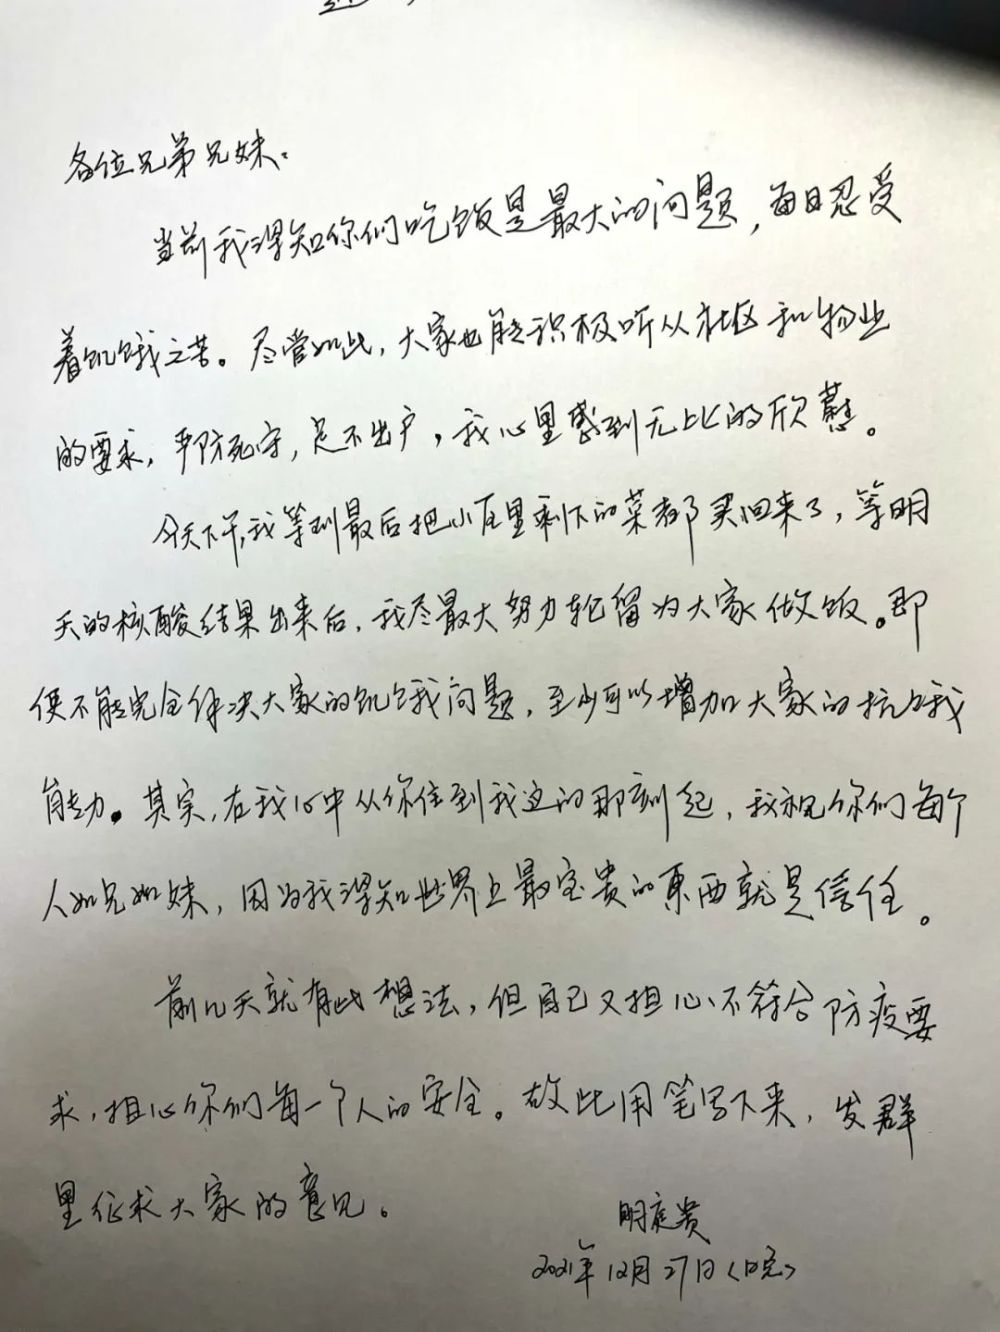 各位兄弟兄妹:
当前我得知你们吃饭是最大的问题，每日忍受
着饥饿之苦。尽管如此，大家也能积极听从社区和物业
的要求，严防死守，足不出户，我心里感到无比的欣慰。
今天下午，我等到最后把小店里剩下的菜都买回来了，等明
天的核酸结果出来后，我尽最大努力轮留为大家做饭。即
便不能完全解决大家的饥饿问题，至少可以增加大家的抗饿
能力。其实，在我心中从你住到我这的那刻起，我视你们每个
人如兄如妹，因为我得知世界上最宝贵的東西就是信任。
前几天就有此想法，但自己又担心不符合防疫要
求，担心你们每一个人的安全。故此用笔写下来，发群
里征求大家的意见。
明庭贵
2021年12月27日（晚）